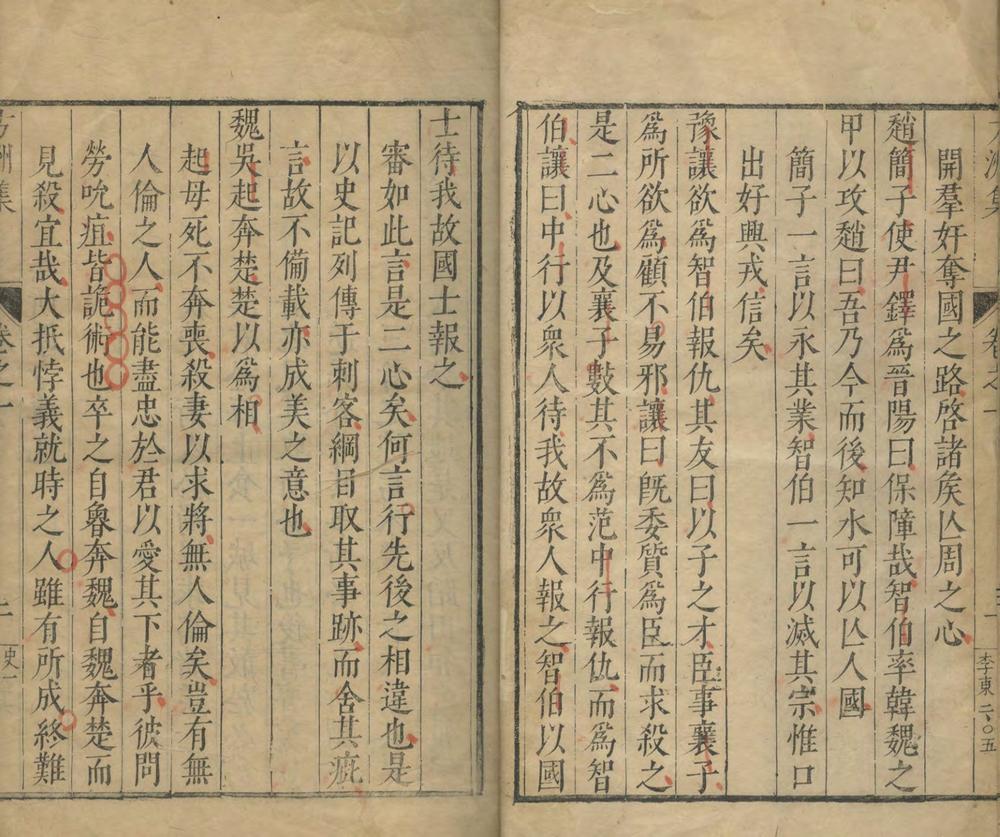 卷之一
李東 二〇五
開羣奸奪國之路啓諸矦亾周之心
趙簡子使尹鐸爲晉陽曰保障哉智伯率韓魏之
甲以攻趙曰吾乃今而後知水可以亾人國
簡子一言以永其業智伯一言以滅其宗惟口
出好興戎信矣
豫讓欲爲智伯報仇其友曰以子之才臣事襄子
爲所欲爲顧不易邪讓曰既委質爲臣而求殺之
是二心也及襄子數其不爲范中行報仇而爲智
伯讓曰中行以衆人待我故衆人報之智伯以國
士待我故國士報之
審如此言是二心矣何言行先後之相違也是
以史記列傳于刺客綱目取其事跡而舍其疵
言故不備載亦成美之意也
魏吳起奔楚楚以爲相
起母死不奔喪殺妻以求將無人倫矣豈有無
人倫之人而能盡忠於君以愛其下者乎彼問
勞吮疽皆詭術也卒之自魯奔魏自魏奔楚而
見殺宜哉大抵悖義就時之人雖有所成終難
方洲集
卷之一
二
史一